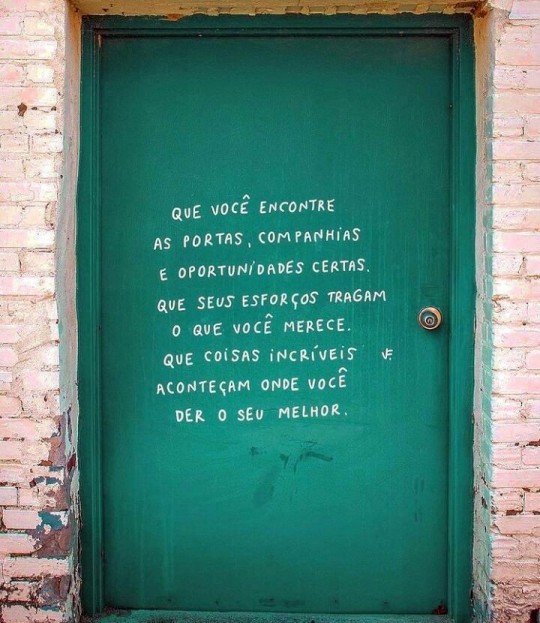 QUE VOCÊ ENCONTRE
AS PORTAS, COMPANHIAS
E OPORTUNIDADES CERTAS.
QUE SEUS ESFORÇOS TRAGAM
O QUE VOCÊ MERECE.
QUE COISAS INCRÍVEIS
ACONTEÇAM ONDE VOCÊ
DER O SEU MELHOR.